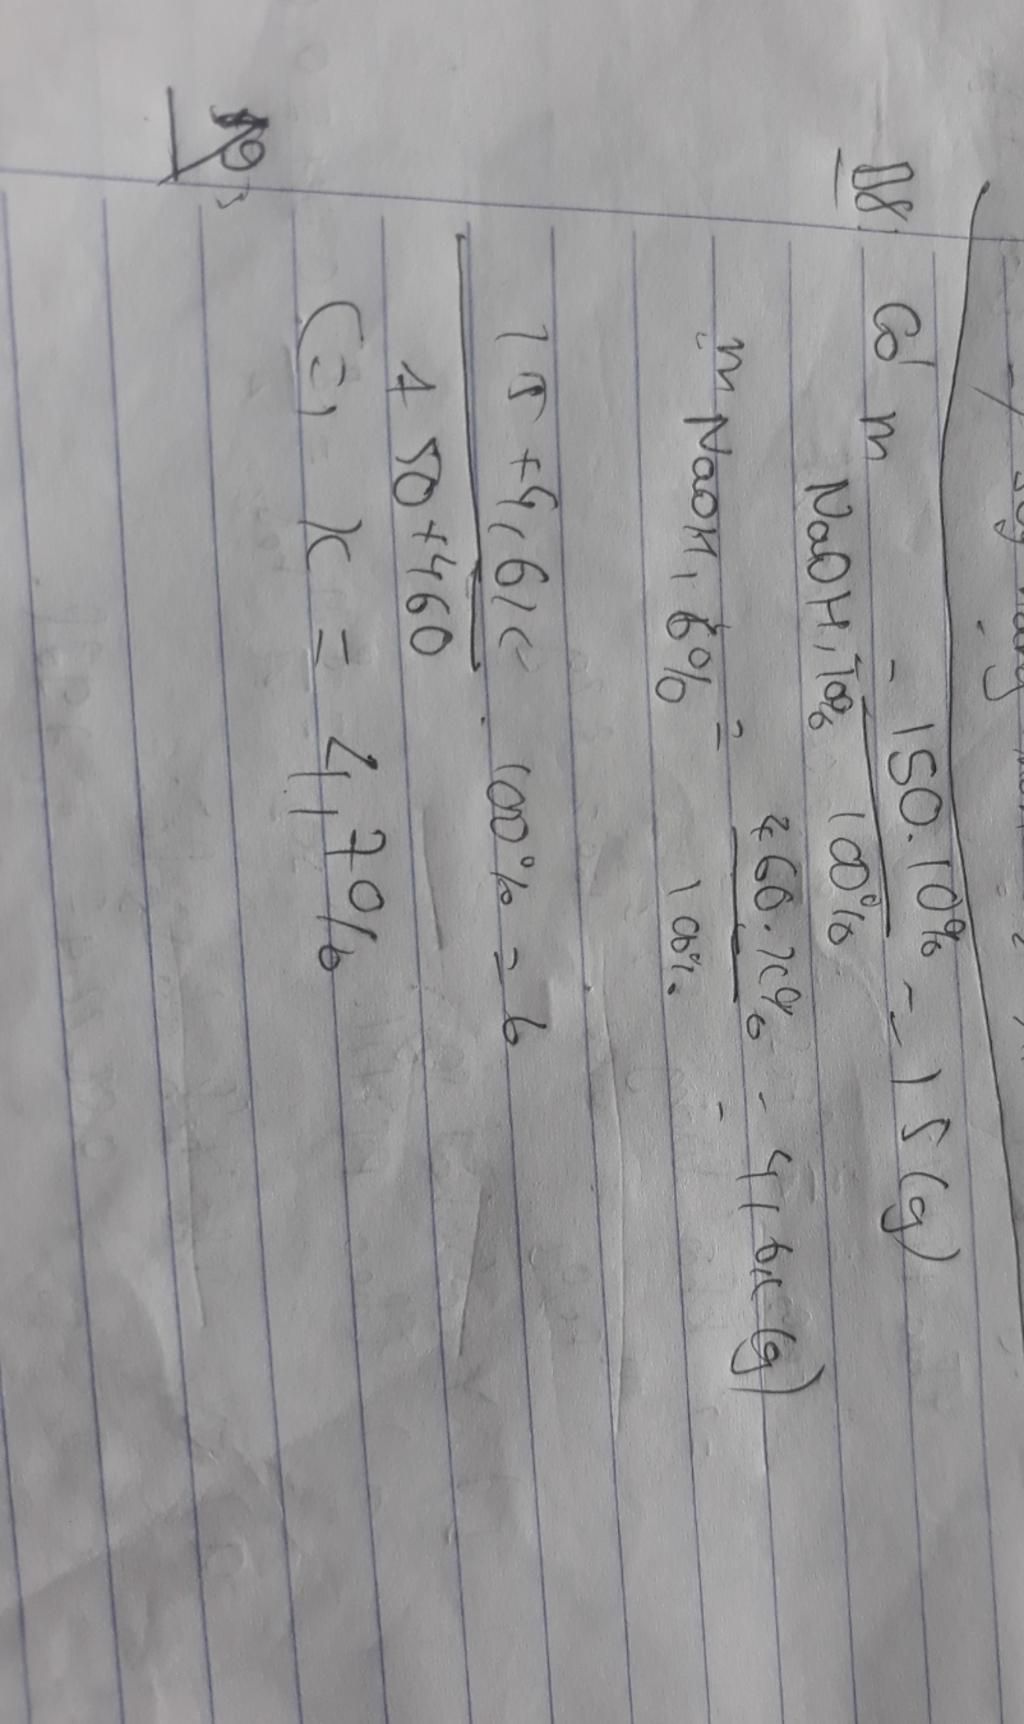 18, Có m NaOH, 10% = 150.10% / 100% = 15 (g)
m NaOH, 6% = 460.x% / 100% = 4,6x (g)
15 + 4,6x / 150 + 460 . 100% = 6
(=) x = 4,70%
19,